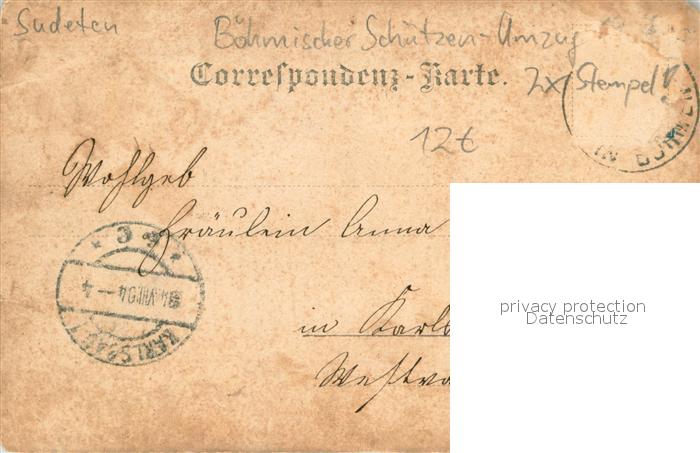 Sudeten
Böhmischer Schützen-Umzug
Correspondenz-Karte.
2x Stempel!
12€
IN BÖHMEN
Wohlgeb
Fräulein Anna
* 3 *
VIII.04-4
KARLSBAD 1
in Karls
Westva
privacy protection
Datenschutz